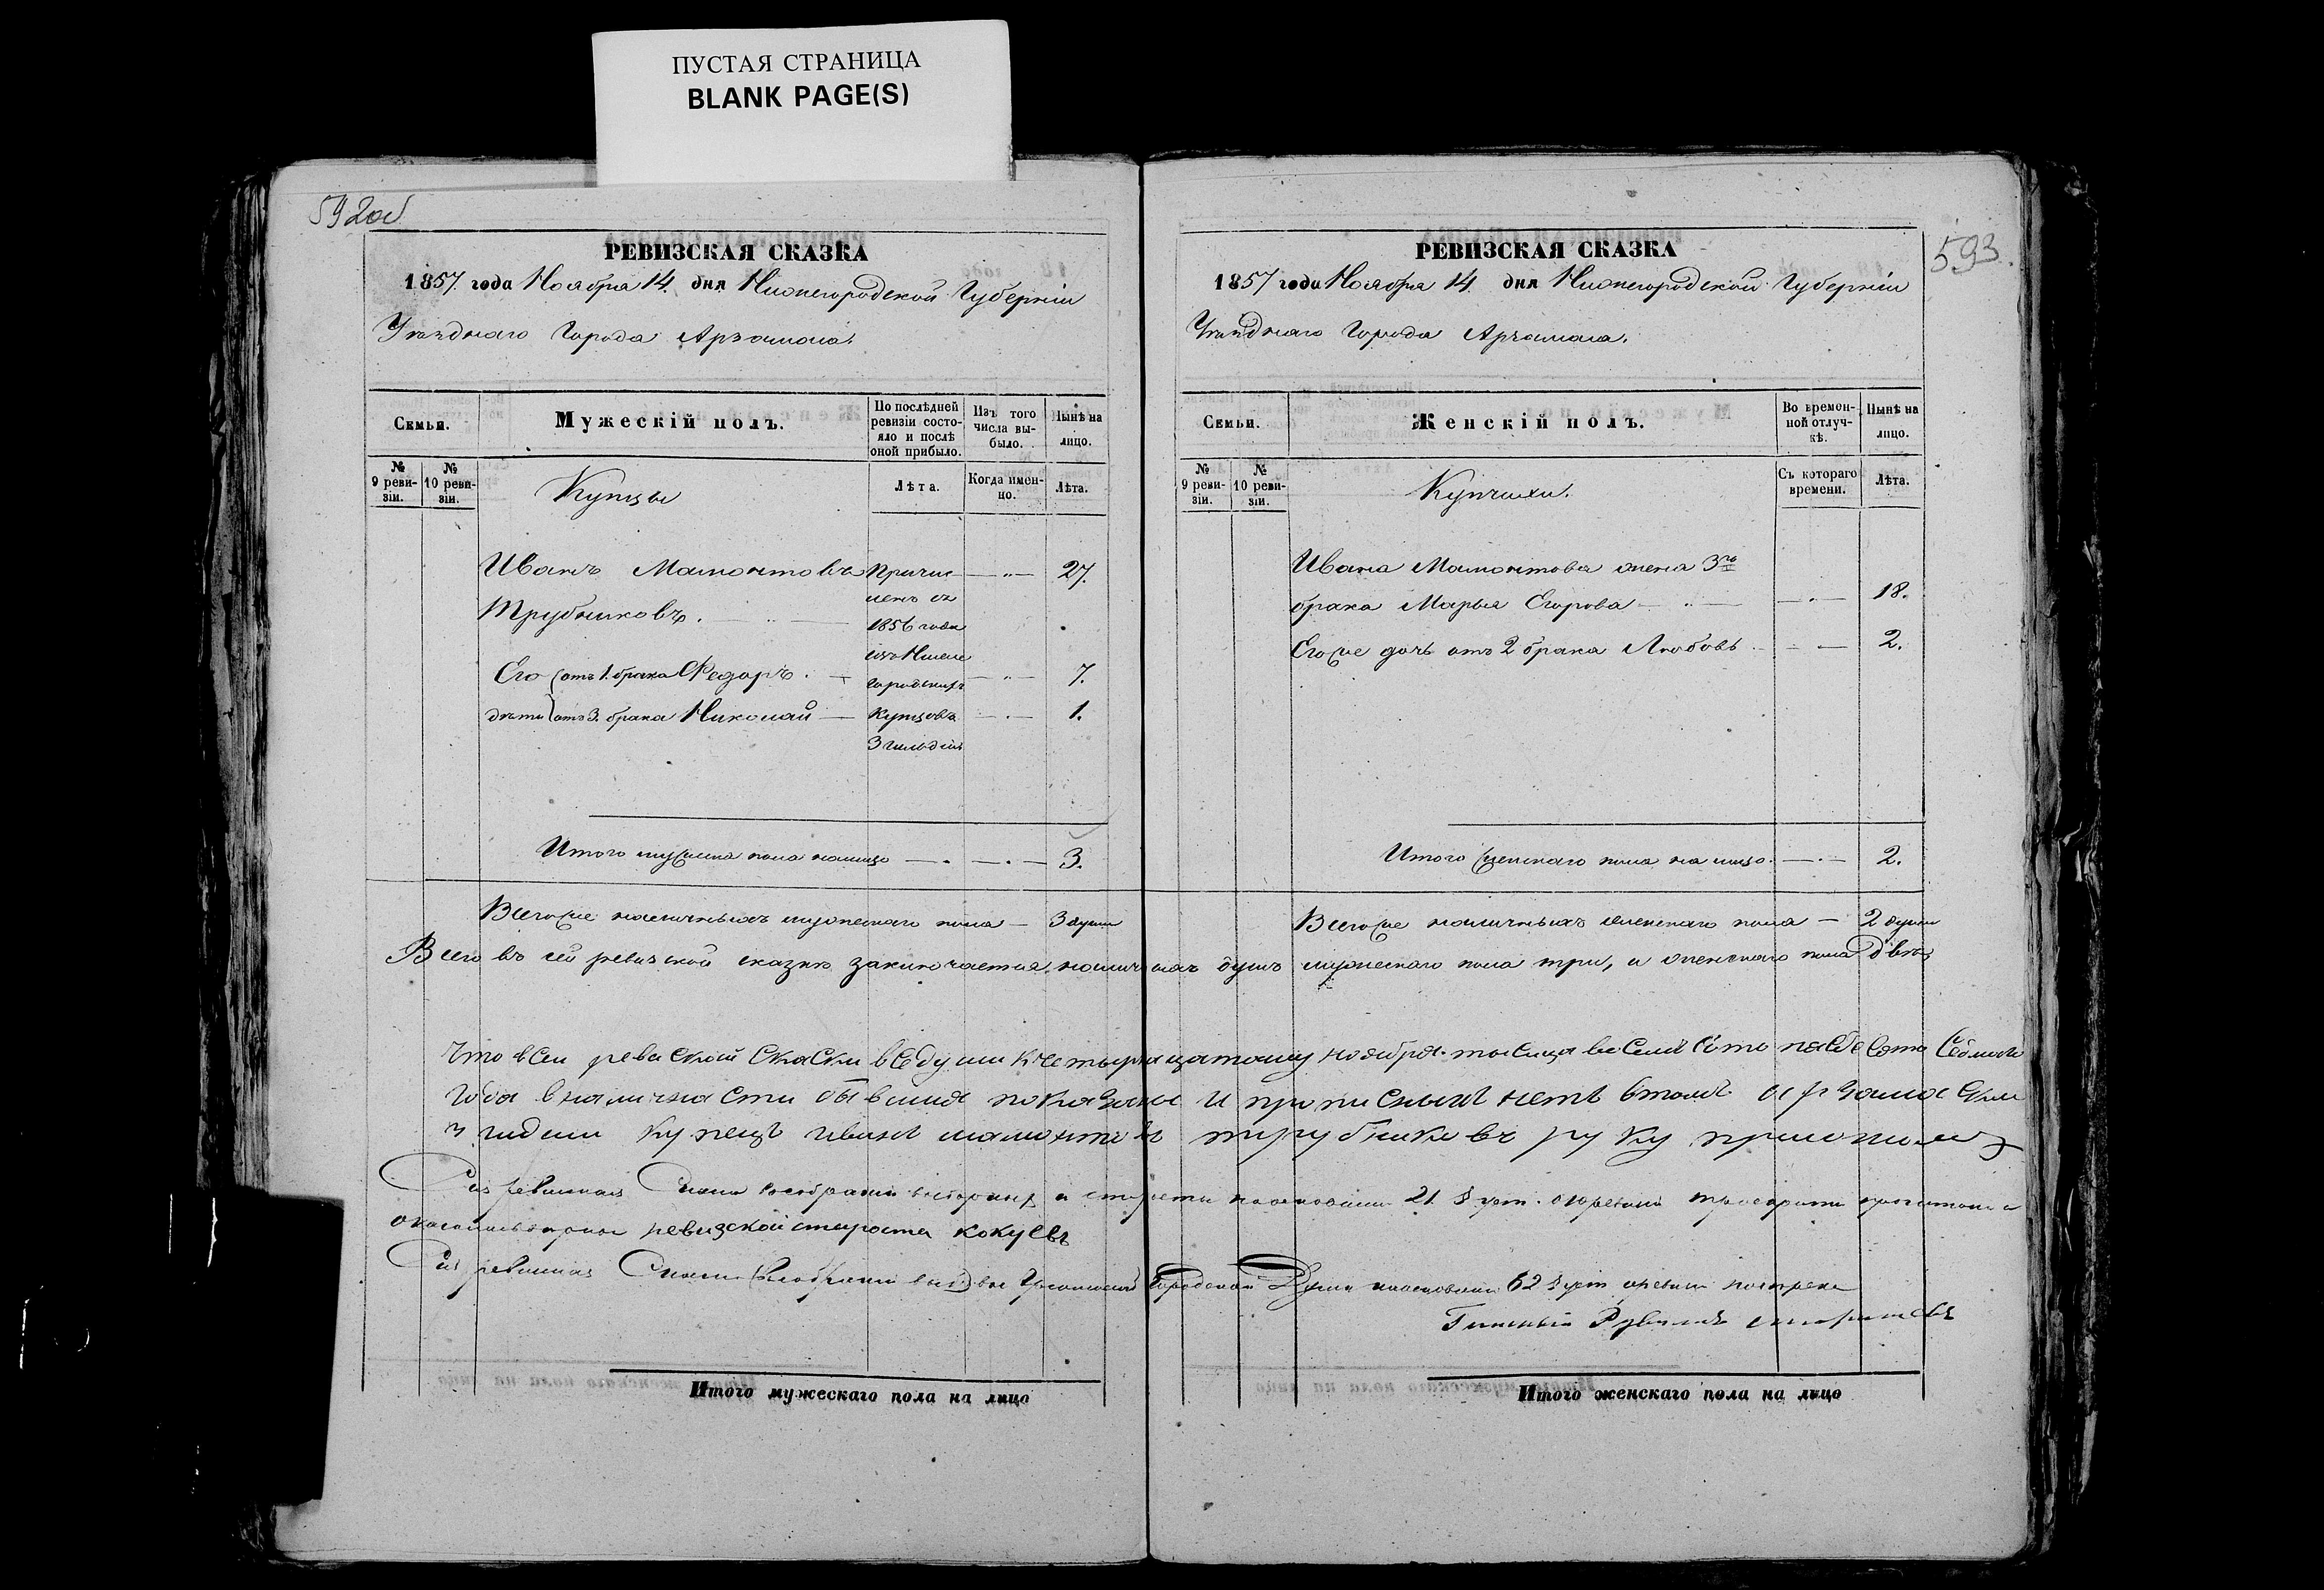 ПУСТАЯ СТРАНИЦА
BLANK PAGE(S)
592об
РЕВИЗСКАЯ СКАЗКА
1857 года Ноября 14. дня Нижегородской Губерніи
Уѣзднаго Города Арзамаса.
Семьи.
Мужескій полъ.
По послѣдней ревизіи состо-
яло и послѣ
оной прибыло.
Изъ того
числа вы-
было.
Нынѣ на
лицо.
№
9 реви-
зіи.
№
10 реви-
зіи.
Купцы
Лѣта.
Когда имен-
но.
Лѣта.
Иванъ Мамонтовъ Причис 27.
ленъ съ
Трубниковъ.
1856 года
изъ Нижне
Его отъ 1. брака Федоръ. городскихъ 7.
дѣти отъ 3. брака Николай Купцовъ 1.
3 гильдіи
Итого мужеска пола налицо 3.
Всего же наличныхъ мужескаго пола — 3 души
593.
РЕВИЗСКАЯ СКАЗКА
1857 года Ноября 14 дня Нижегородской Губерніи
Уѣзднаго Города Арзамаса.
Семьи.
Женскій полъ.
Во времен-
ной отлуч-
кѣ.
Нынѣ на
лицо.
№
9 реви-
зіи.
№
10 реви-
зіи.
Купчихи.
Съ котораго
времени.
Лѣта.
Ивана Мамонтова жена 3го
брака Марья Егорова 18.
Его же дочь отъ 2 брака Любовь 2.
Итого женскаго пола на лицо. 2.
Всего же наличныхъ женскаго пола — 2 души
Всего въ сей ревизской сказкѣ заключается наличныхъ душъ мужескаго пола три, и женскаго пола двѣ
Что всеи ревиской Скаски вседуши кчетырнацатому ноября месеца восемь сотъ пядесятъ седмого
года вналичнасти бывшия показаны и прописныхъ нетъ втомъ арзамаский
3 гидии купецъ иванъ мамонтовъ трубниковъ руку приложилъ
Сія ревизская Сказка 21 § уст.
ревизской староста Кокуевъ
Сія ревизская Сказка Городской Думе 62 § уст
Итого мужескаго пола на лицо
Итого женскаго пола на лицо